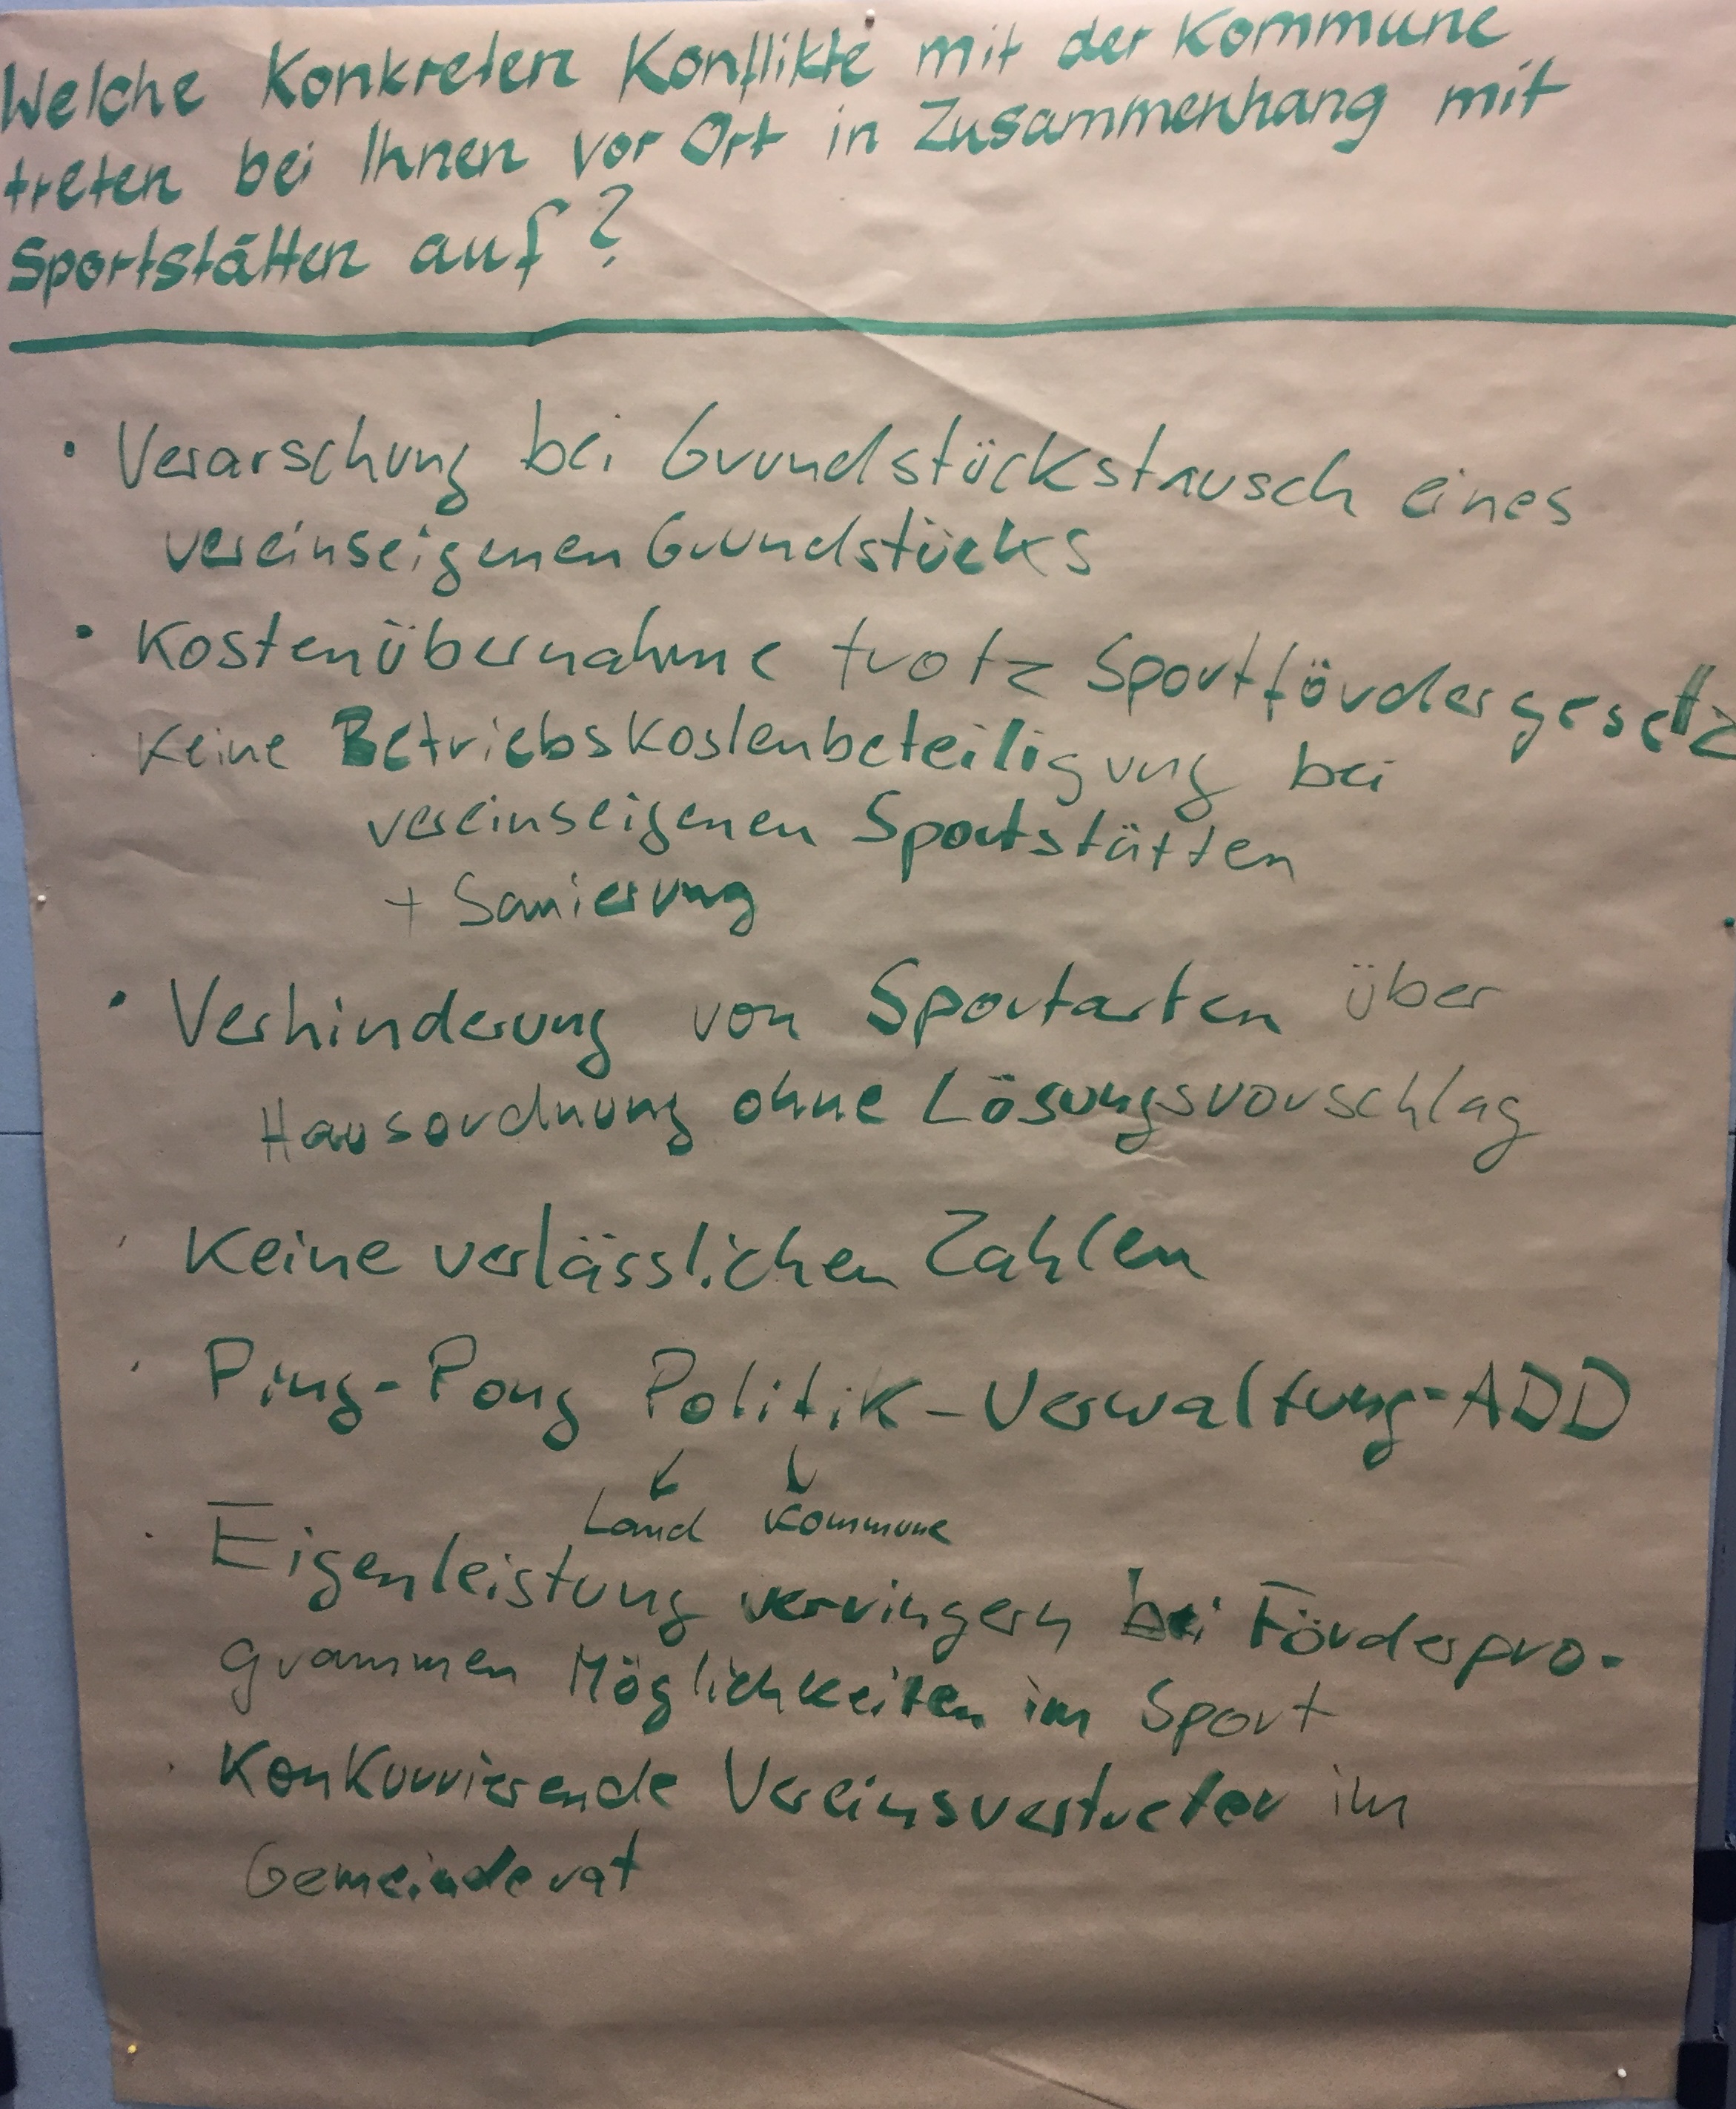 Welche Konkreten Konflikte mit der Kommune
treten bei Ihnen vor Ort in Zusammenhang mit
Sportstätten auf?
• Verarschung bei Grundstückstausch eines
vereinseigenen Grundstücks
• Kostenübernahme trotz Sportfördergesetz
· Keine Betriebskostenbeteiligung bei
vereinseigenen Sportstätten
+ Sanierung
• Verhinderung von Sportarten über
Hausordnung ohne Lösungsvorschlag
· Keine verlässlichen Zahlen
· Ping-Pong Politik-Verwaltung-ADD
↙ ↘
Land Kommune
· Eigenleistung verringern bei Förderpro-
grammen Möglichkeiten im Sport
· Konkurrierende Vereinsvertreter im
Gemeinderat